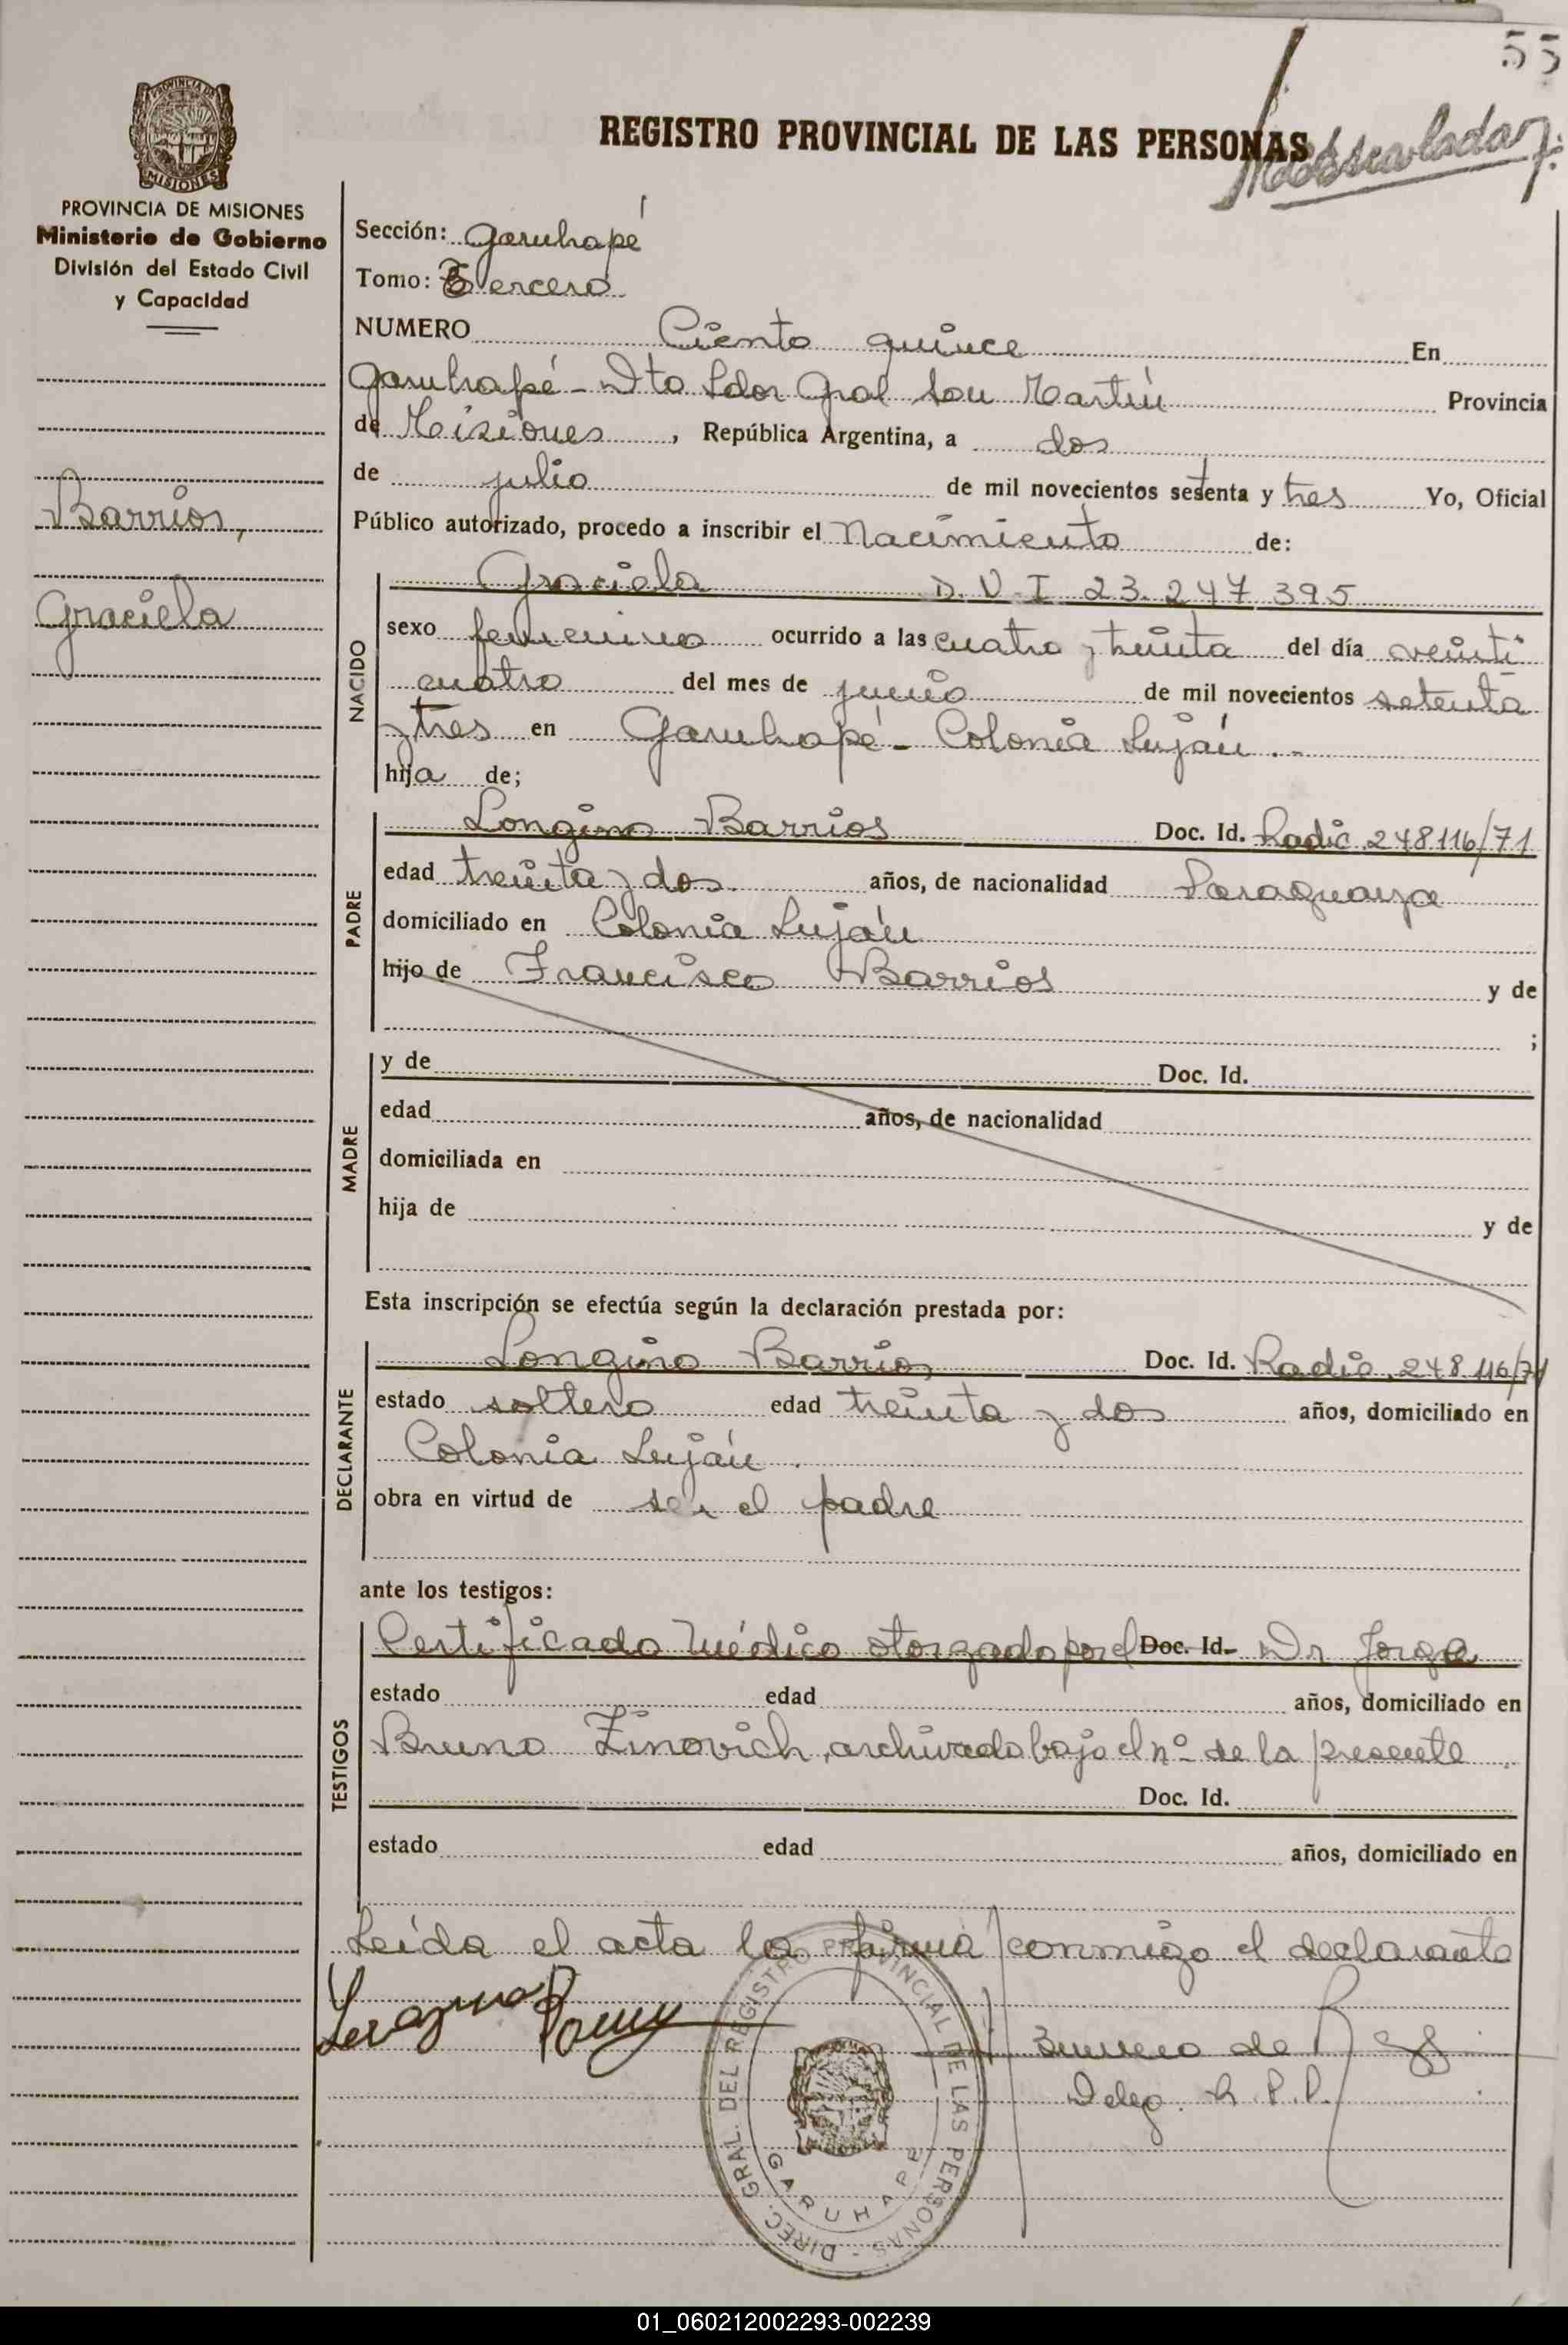 55
REGISTRO PROVINCIAL DE LAS PERSONAS
PROVINCIA DE MISIONES
Ministerio de Gobierno
División del Estado Civil
y Capacidad
Barrios,
Graciela
Sección: Garuhapé
Tomo: Tercero
NUMERO Ciento quince En
Garuhapé - Dto Ldor Gral San Martín Provincia
de Misiones, República Argentina, a dos
de julio de mil novecientos setenta y tres Yo, Oficial
Público autorizado, procedo a inscribir el Nacimiento de:
NACIDO
Graciela D.N.I 23.247.395
sexo femenino ocurrido a las cuatro y treinta del día veinti
cuatro del mes de junio de mil novecientos setenta
y tres en Garuhapé - Colonia Luján.-
hija de;
PADRE
Longino Barrios Doc. Id. Radic. 248.116/71
edad treinta y dos años, de nacionalidad Paraguaya
domiciliado en Colonia Luján
hijo de Francisco Barrios y de
;
MADRE
y de Doc. Id.
edad años, de nacionalidad
domiciliada en
hija de y de
Esta inscripción se efectúa según la declaración prestada por:
DECLARANTE
Longino Barrios Doc. Id. Radic. 248.116/71
estado soltero edad treinta y dos años, domiciliado en
Colonia Luján.
obra en virtud de ser el padre
ante los testigos:
TESTIGOS
Certificado Médico otorgado por el Doc. Id. Dr Jorge
estado edad años, domiciliado en
Bruno Zinovich, archivado bajo el nº de la presente.
Doc. Id.
estado edad años, domiciliado en
Leída el acta la firma conmigo el declarante
Deleg. R.P.P.
DIREC. GRAL. DEL REGISTRO PROVINCIAL DE LAS PERSONAS -
GARUHAPE
01_060212002293-002239